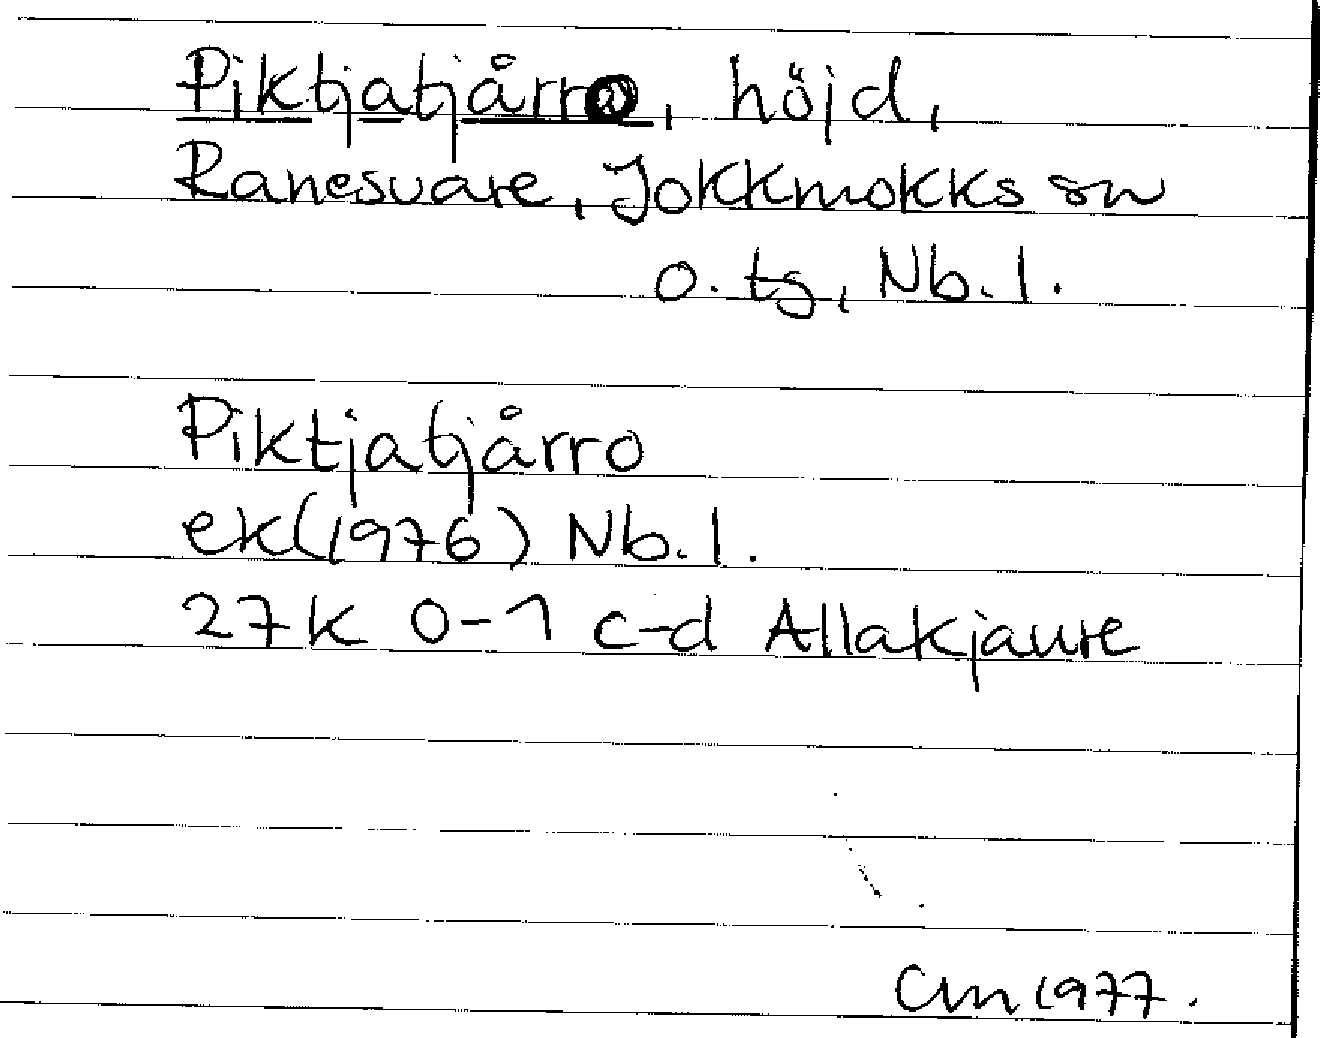 Piktjatjårro, höjd,
Ranesvare, Jokkmokks sn
o. tg, Nb. l.
Piktjatjårro
ek(1976) Nb. l.
27K 0-1 c-d Allakjaure
Cm 1977.